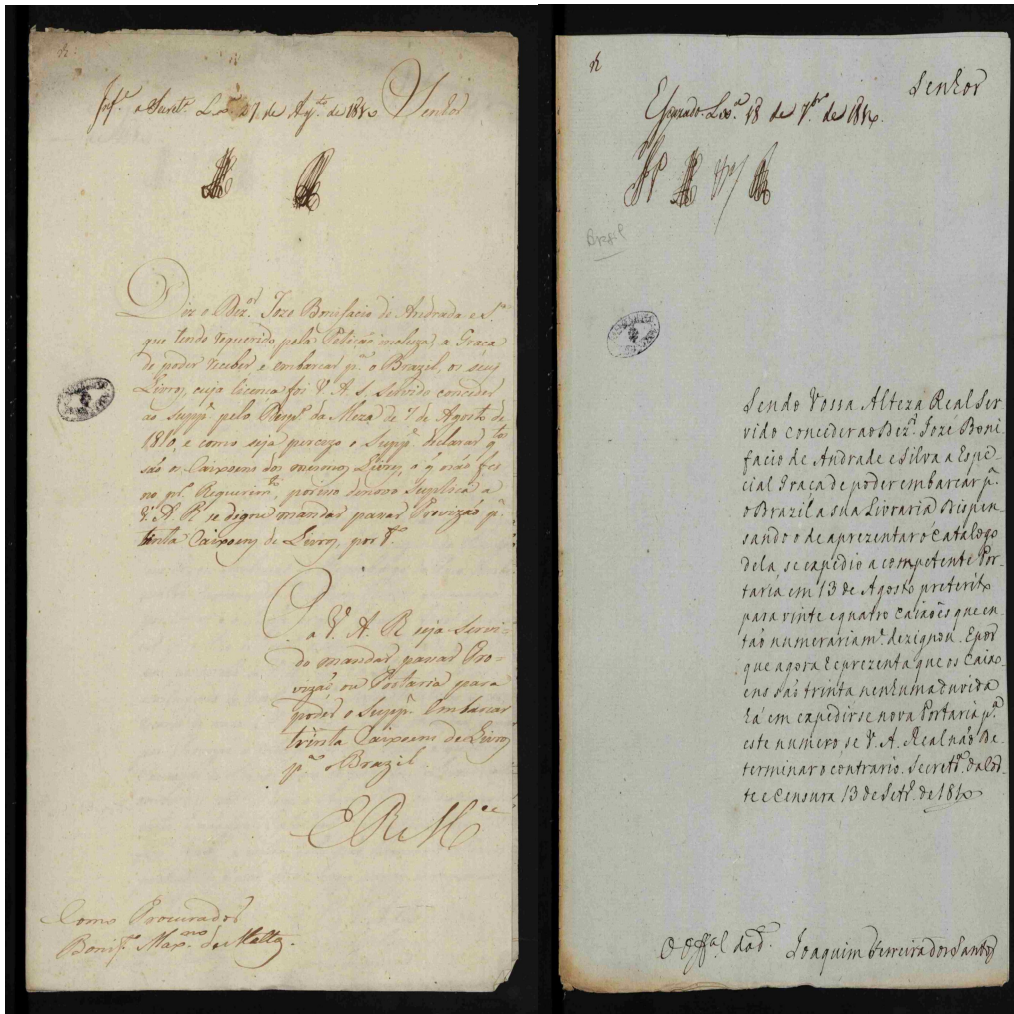 Senhor
Inf.e a Secret.a Lx.a 27 de Ag.to de 1810
Diz o Dez.or Joze Bonifacio de Andrada e S.a
que tendo requerido pela Petição incluza, a Graça
de poder receber, e embarcar p.a o Brazil, os seus
Livros, cuja licença foi V. A. S. servido conceder
ao Supp.e pelo Exp.e da Meza de 7 de Agosto de
1810, e como seja percizo o Supp.e declarar q.tos
são os Caixoens dos mesmos Livros, o q não fes
no pr.o Requerim.to, porisso denovo Suplica a
V. A. R se digne mandar passar Provizão p.a
trinta Caixoens de Livros, por t.o
P. a V. A. R seja Servi-
do mandar passar Pro-
vizão ou Portaria para
poder o Supp.e Embarcar
trinta Caixoens de Livros
p.a o Brazil.
E R M.ce
Como Procurador
Bonif.o Max.no da Matta.
Senhor
Esperado. Lx.a 18 de 7.br de 1810.
Brasil
Sendo Vossa Alteza Real Ser-
vido conceder ao Dez.r Jozé Boni-
facio de Andrade e Silva a Espe-
cial Graça de poder embarcar p.a
o Brazil a sua Livraria Dispen-
sando o de aprezentar o Catalogo
dela se expedio a competente Por-
taria em 13 de Agosto preterito
para vinte e quatro caixões que en-
tão numerariam.e dezignou. E por
que agora Reprezenta que os Caixo-
ens são trinta nenhuma duvida
há em expedirse nova Portaria p.a
este numero se V. A. Real não De-
terminar o contrario. Secret.a da Cor-
te e Censura 13 de Setr.o de 1810
O Off.al da d.
Joaquim Ferreira dos Santos